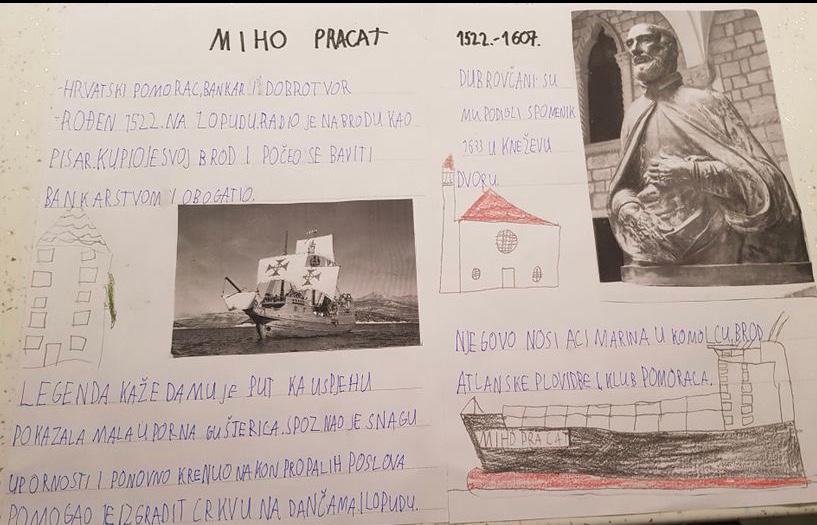 MIHO PRACAT
-HRVATSKI POMORAC, BANKAR I DOBROTVOR
-ROĐEN 1522. NA LOPUDU. RADIO JE NA BRODU KAO
PISAR. KUPIO JE SVOJ BROD I POČEO SE BAVITI
BANKARSTVOM I OBOGATIO.
LEGENDA KAŽE DA MU JE PUT KA USPJEHU
POKAZALA MALA UPORNA GUŠTERICA. SPOZNAO JE SNAGU
UPORNOSTI I PONOVNO KRENUO NAKON PROPALIH POSLOVA
POMOGAO JE IZGRADIT CRKVU NA DANČAMA I LOPUDU.
1522.-1607.
DUBROVČANI SU
MU PODIGLI SPOMENIK
1633 U KNEŽEVU
DVORU
NJEGOVO NOSI ACI MARINA U KOMOLCU, BROD
ATLANSKE PLOVIDBE I KLUB POMORACA.
MIHO PRACAT